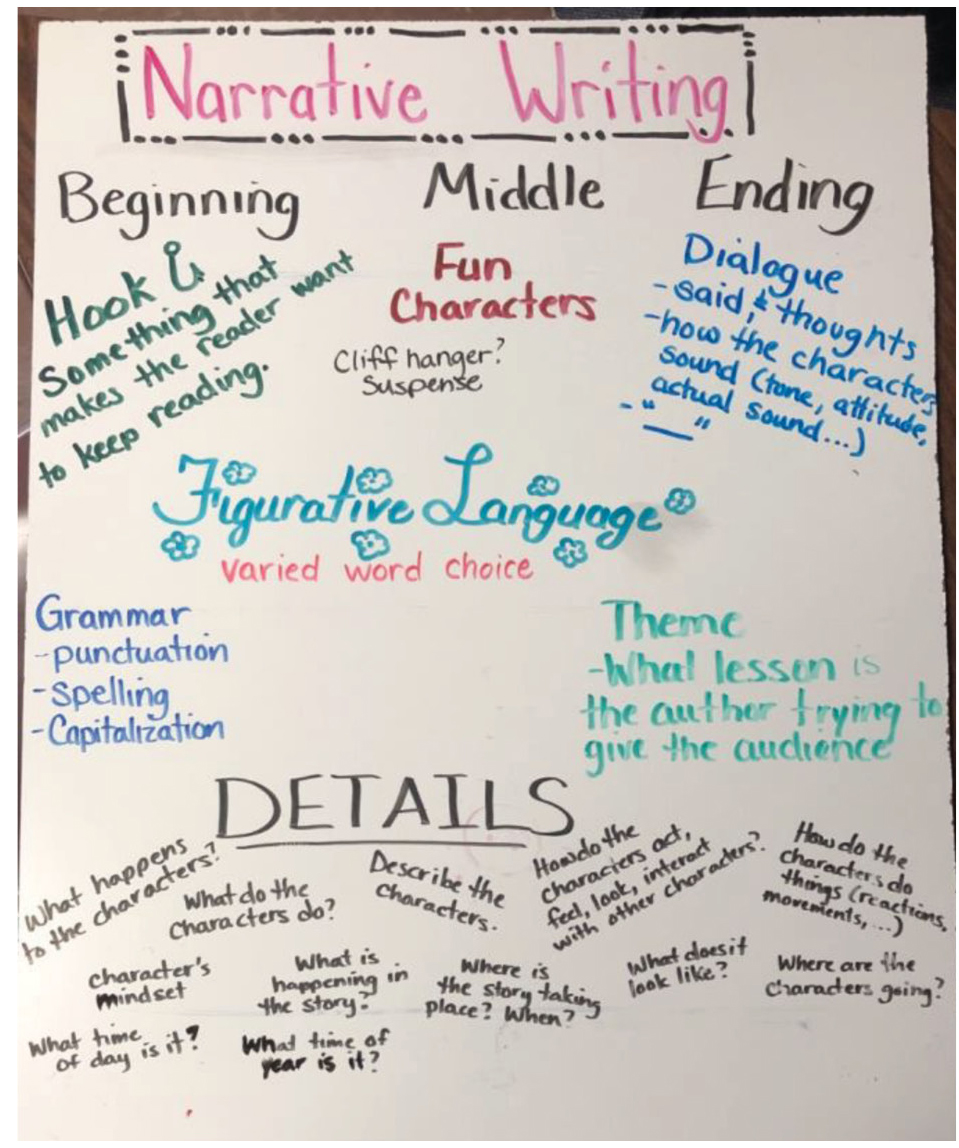 Narrative Writing
Beginning
Middle
Ending
Hook
Something that
makes the reader want
to keep reading.
Fun
Characters
Cliff hanger?
Suspense
Dialogue
- said, & thoughts
- how the characters
sound (tone, attitude,
actual sound...)
- “ __ ”
Figurative Language
varied word choice
Grammar
- punctuation
- Spelling
- Capitalization
Theme
- What lesson is
the author trying to
give the audience
DETAILS
What happens
to the characters?
What do the
characters do?
Describe the
characters.
How do the
characters act,
feel, look, interact
with other characters?
How do the
characters do
things (reactions,
movements,...)
character's
mindset
What is
happening in
the story?
Where is
the story taking
place? When?
What does it
look like?
Where are the
characters going?
What time
of day is it?
What time of
year is it?